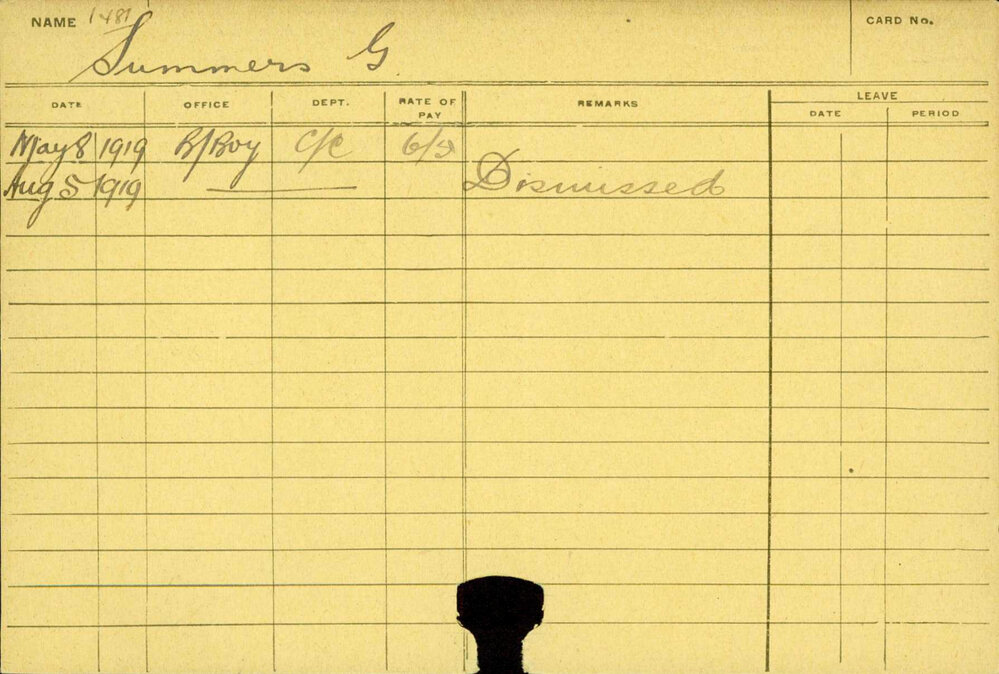 NAME 1481 CARD No.
Summers G
DATE OFFICE DEPT. RATE OF PAY REMARKS LEAVE
DATE PERIOD
May 8 1919 R/Boy C/C
Aug 5 1919 Dismissed